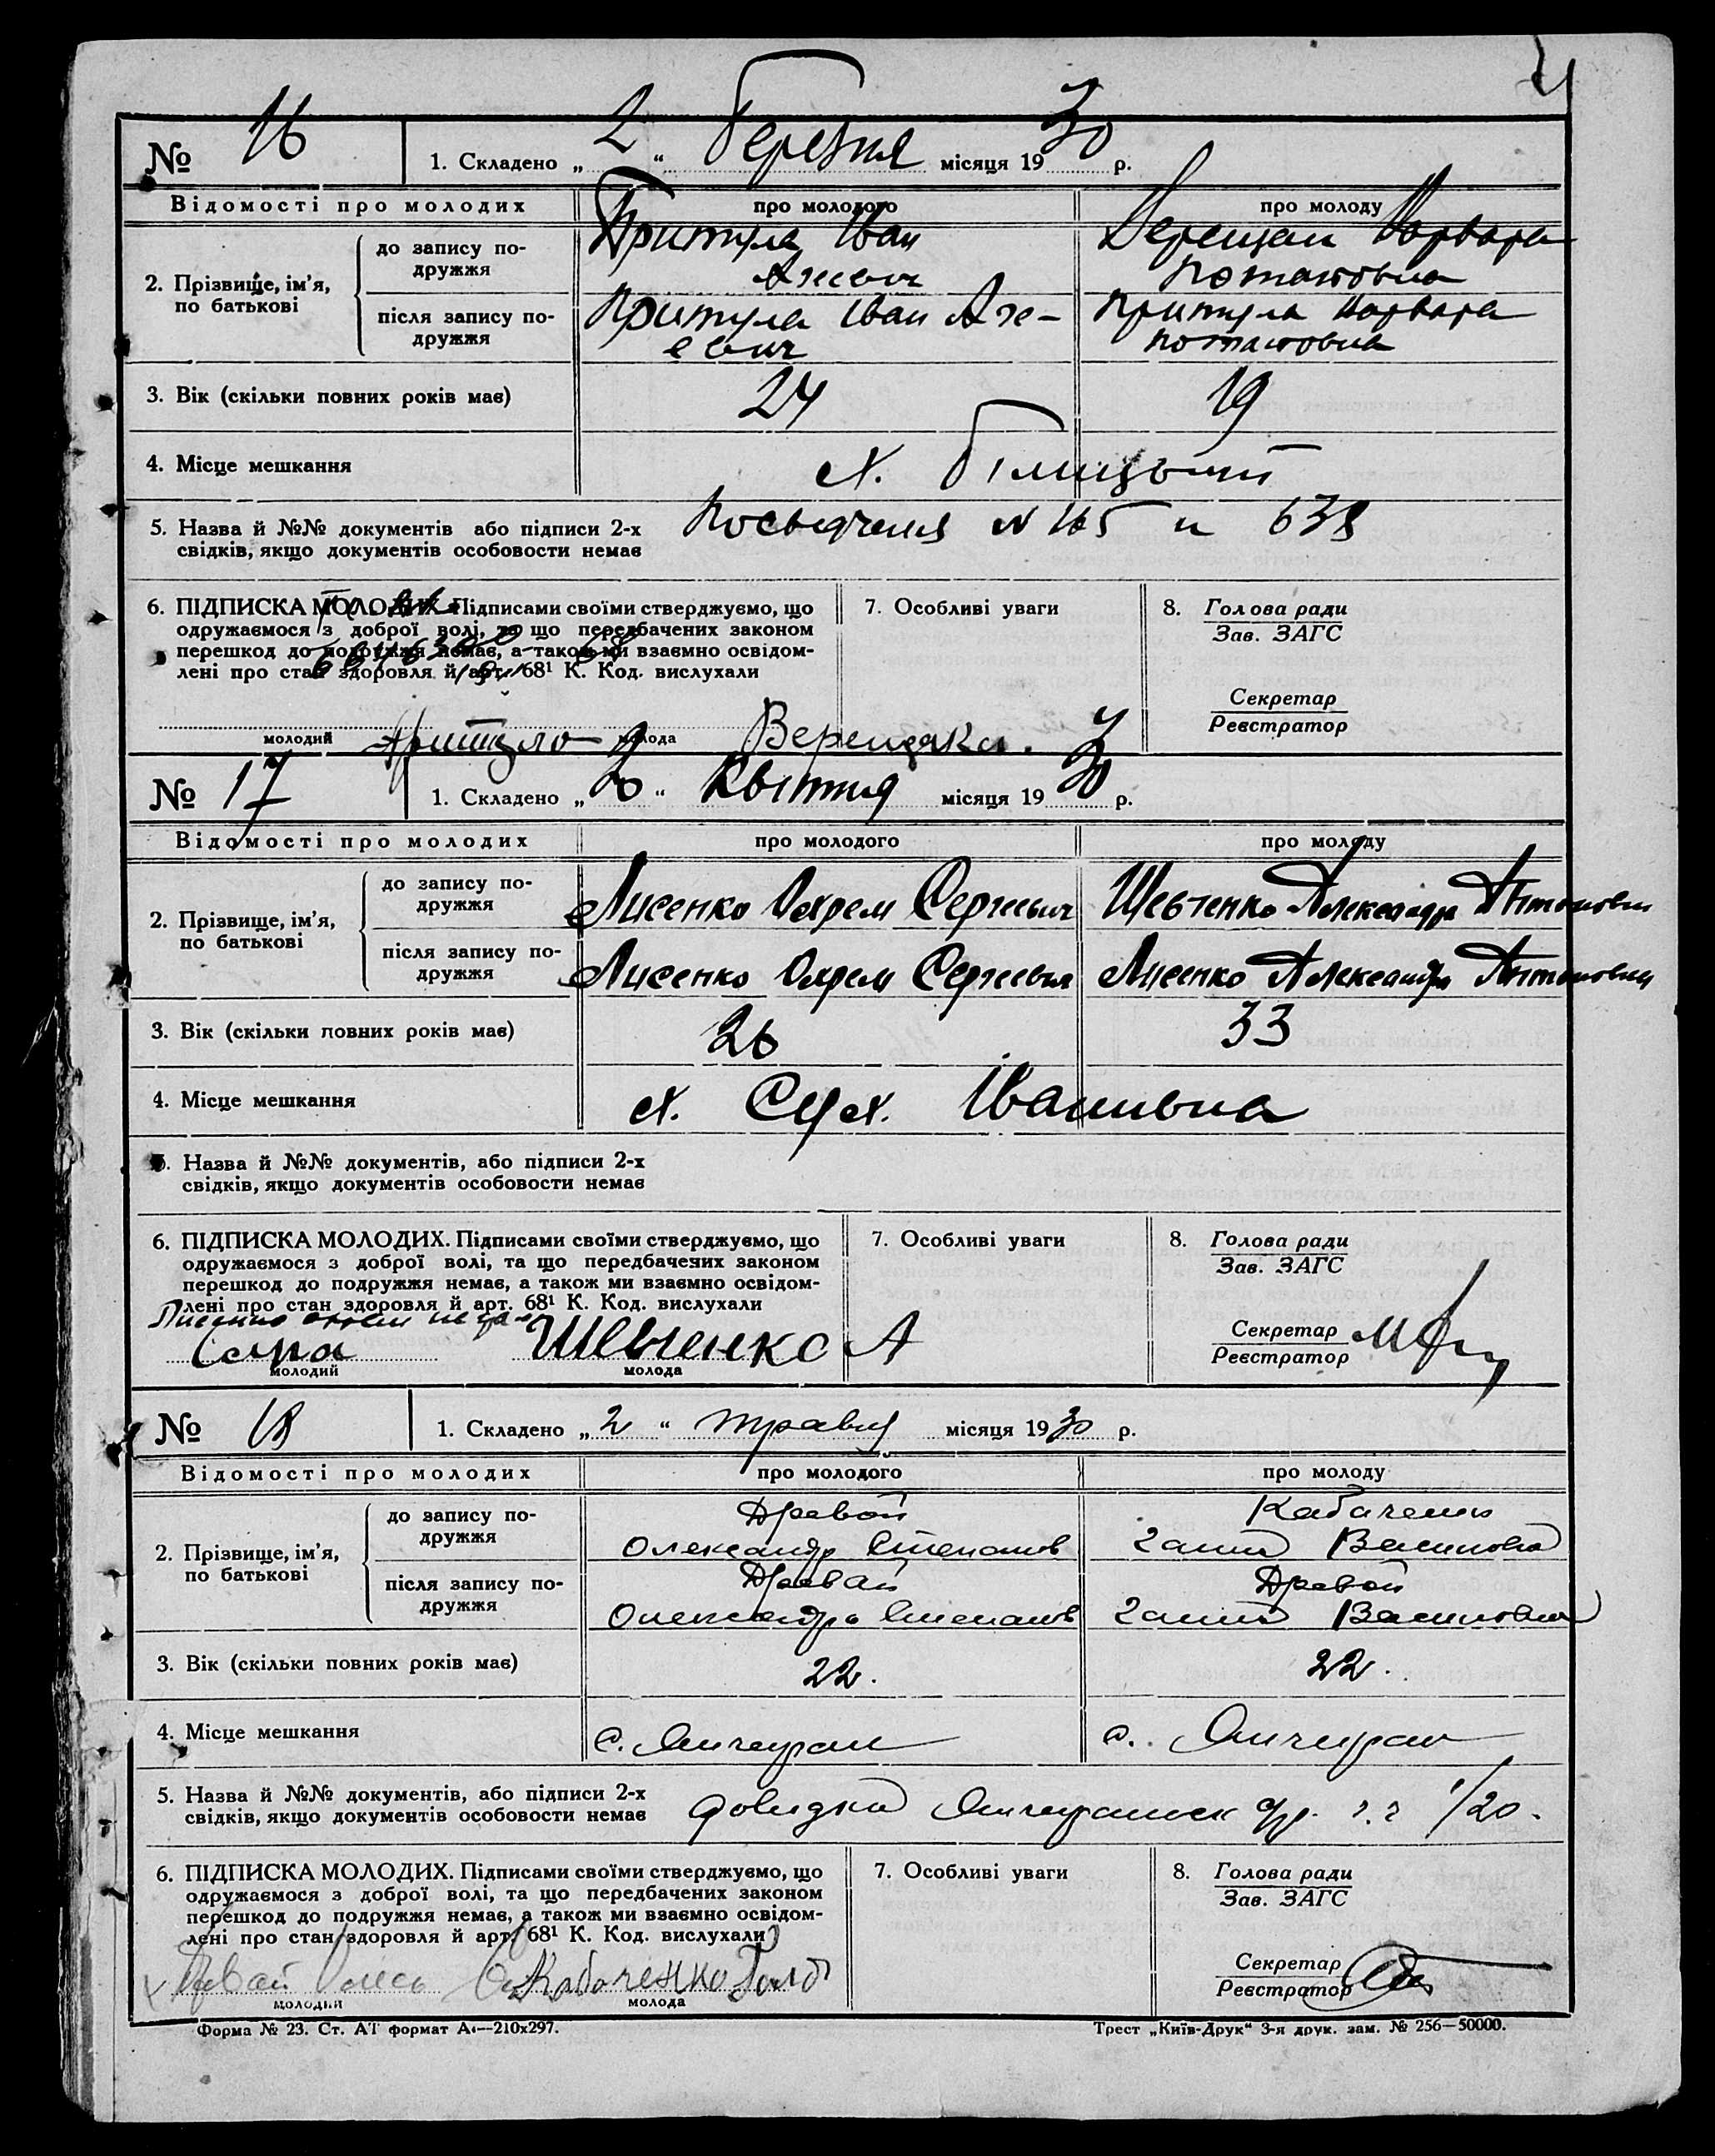 № 16 1. Складено „ 2 “ березня місяця 1930 р.
Відомості про молодих про молодого про молоду
2. Прізвище, ім'я, по батькові
до запису по-
дружжя
Притула Іван
Верещак Варвара
Потаповна
після запису по-
дружжя
Притула Іван
Притула Варвара
Потаповна
3. Вік (скільки повних років має) 24 19
4. Місце мешкання х. Білицький
5. Назва й №№ документів або підписи 2-х
свідків, якщо документів особовости немає
Посьвідчення N 165 и 638
6. ПІДПИСКА МОЛОДИХ. Підписами своїми стверджуємо, що
одружаємося з доброї волі, та що передбачених законом
перешкод до подружжя немає, а також ми взаємно освідом-
лені про стан здоровля й арт. 68¹ К. Код. вислухали
7. Особливі уваги
8. Голова ради
Зав. ЗАГС
Секретар
Реєстратор
молодий Притуло молода Верещака.
№ 17 1. Складено „ “ Квітня місяця 1930 р.
Відомості про молодих про молодого про молоду
2. Прізвище, ім'я,
по батькові
до запису по-
дружжя
Лисенко Охрем Сергеевич Шевченко Александра Антоновна
після запису по-
дружжя
Лисенко Охрем Сергеевич Лисенко Александра Антоновна
3. Вік (скільки повних років має) 26 33
4. Місце мешкання х. Сух. Іванивна
5. Назва й №№ документів, або підписи 2-х
свідків, якщо документів особовости немає
6. ПІДПИСКА МОЛОДИХ. Підписами своїми стверджуємо, що
одружаємося з доброї волі, та що передбачених законом
перешкод до подружжя немає, а також ми взаємно освідом-
лені про стан здоровля й арт. 68¹ К. Код. вислухали
7. Особливі уваги
8. Голова ради
Зав. ЗАГС
Секретар
Реєстратор
Шевченко А
молодий молода
№ 18 1. Складено „ 2 “ травня місяця 1930 р.
Відомості про молодих про молодого про молоду
2. Прізвище, ім'я,
по батькові
до запису по-
дружжя
Древай Кабаченко
Олександр Степанов Ганна Василовна
після запису по-
дружжя
Древай Древай
Олександр Степанов Ганна Василовна
3. Вік (скільки повних років має) 22. 22.
4. Місце мешкання с. с.
5. Назва й №№ документів, або підписи 2-х
свідків, якщо документів особовости немає
довидка 1/20.
6. ПІДПИСКА МОЛОДИХ. Підписами своїми стверджуємо, що
одружаємося з доброї волі, та що передбачених законом
перешкод до подружжя немає, а також ми взаємно освідом-
лені про стан здоровля й арт. 68¹ К. Код. вислухали
7. Особливі уваги
8. Голова ради
Зав. ЗАГС
Секретар
Реєстратор
Кабаченко
молодий молода
Форма № 23. Ст. АТ формат А4—210х297. Трест „Київ-Друк“ 3-я друк. зам. № 256—50000.